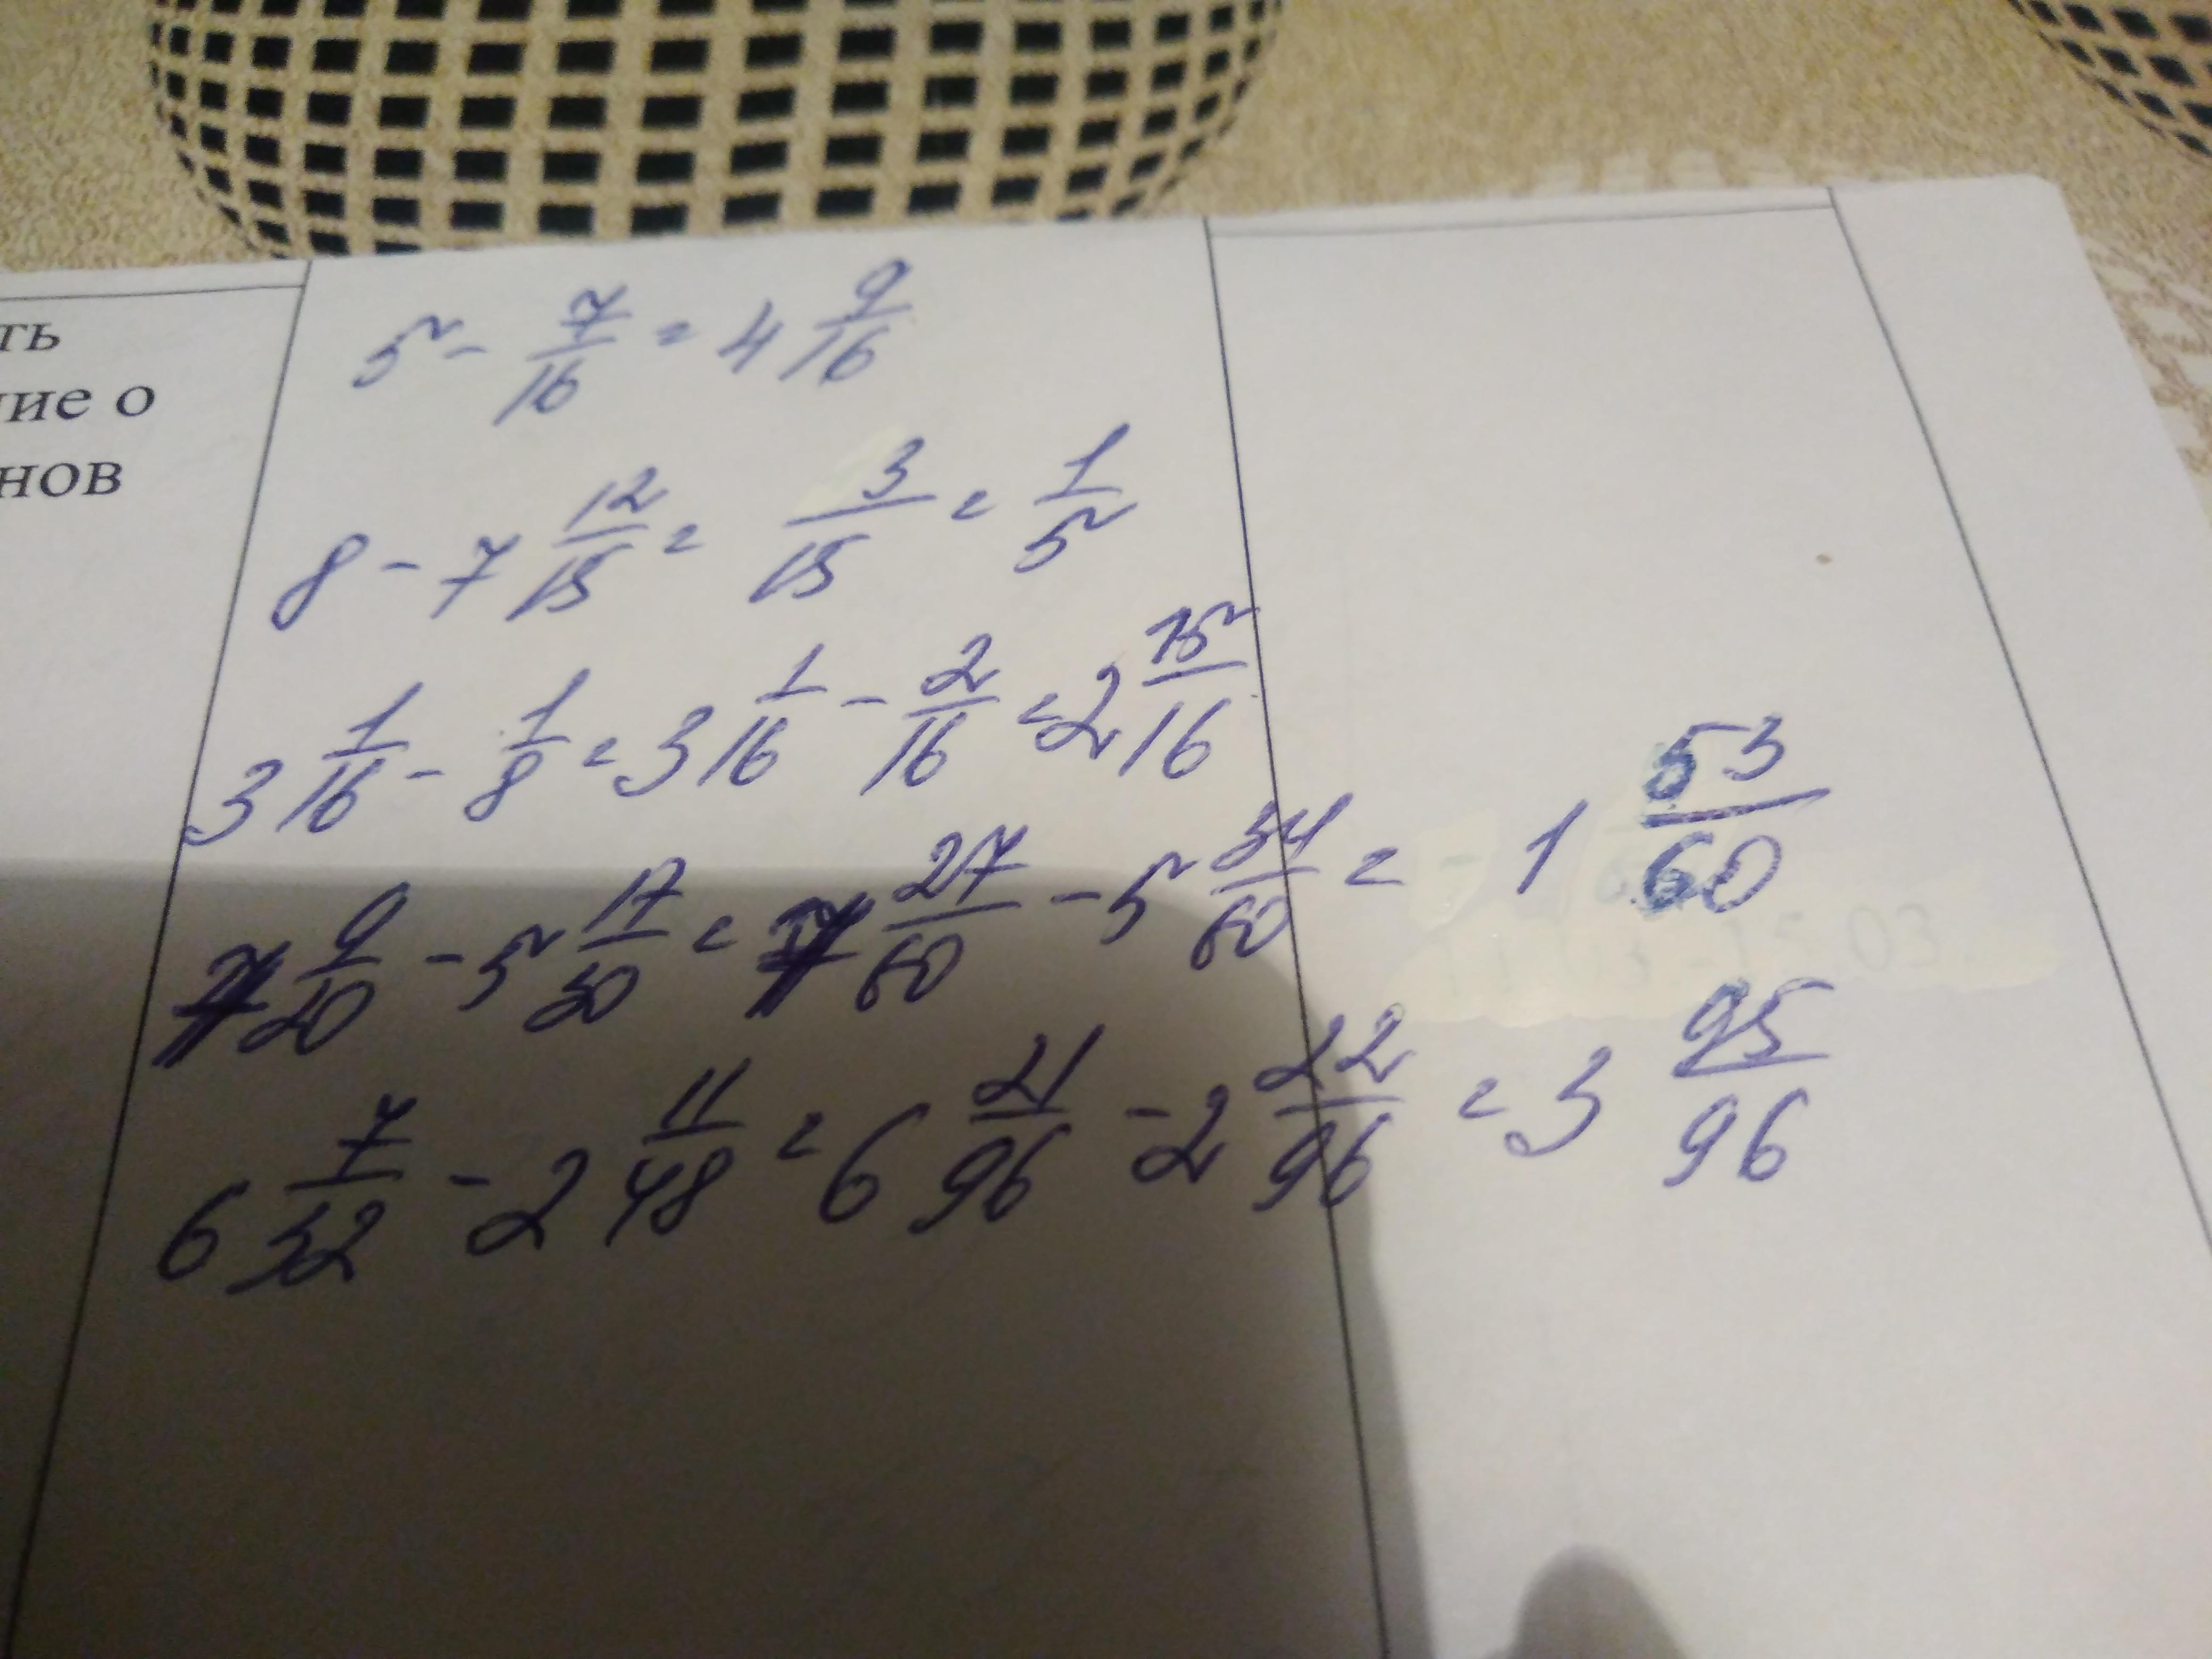 ть
ние о
нов
5 - 7/16 = 4 9/16
8 - 7 12/15 = 3/15 = 1/5
3 1/16 - 1/8 = 3 1/16 - 2/16 = 2 15/16
7 9/20 - 5 17/30 = 7 27/60 - 5 34/60 = 1 53/60
6 7/32 - 2 11/48 = 6 21/96 - 2 22/96 = 3 95/96